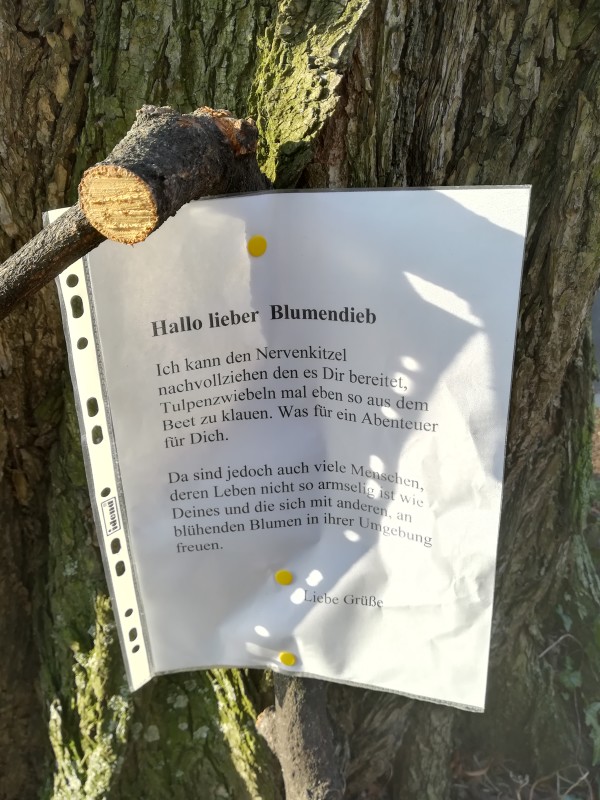 Hallo lieber Blumendieb
Ich kann den Nervenkitzel
nachvollziehen den es Dir bereitet,
Tulpenzwiebeln mal eben so aus dem
Beet zu klauen. Was für ein Abenteuer
für Dich.
Da sind jedoch auch viele Menschen,
deren Leben nicht so armselig ist wie
Deines und die sich mit anderen, an
blühenden Blumen in ihrer Umgebung
freuen.
Liebe Grüße